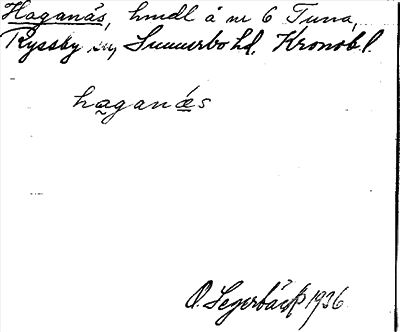 Haganäs, hmdl å nr 6 Tuna,
Ryssby sn, Sunnerbo hd. Kronob. l.
haganä́s
O. Segerbäck 1936